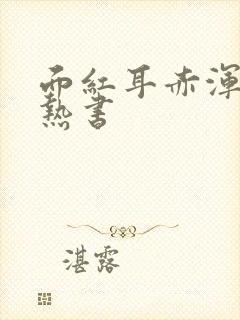 面紅耳赤渾
熱書
湛露